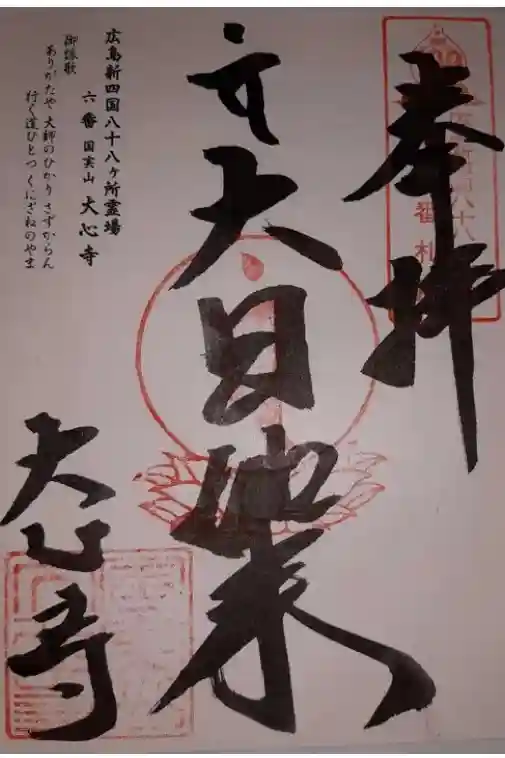 奉拝
番札
大日如来
広島新四国八十八ヶ所霊場
六番 国実山 大心寺
御詠歌
ありがたや 大師のひかり さずからん
行く道ひとつ くにざねのやま
大心寺